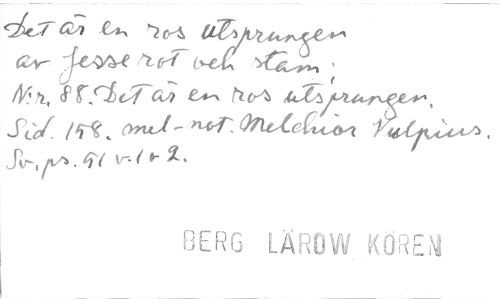 Det är en ros utsprungen
av Jesse rot och stam;
N:r. 88. Det är en ros utsprungen.
Sid. 158. mel-not. Melchior Vulpius.
Sv. ps. 51 v. 1 o 2.
BERG LÄROW KÖREN